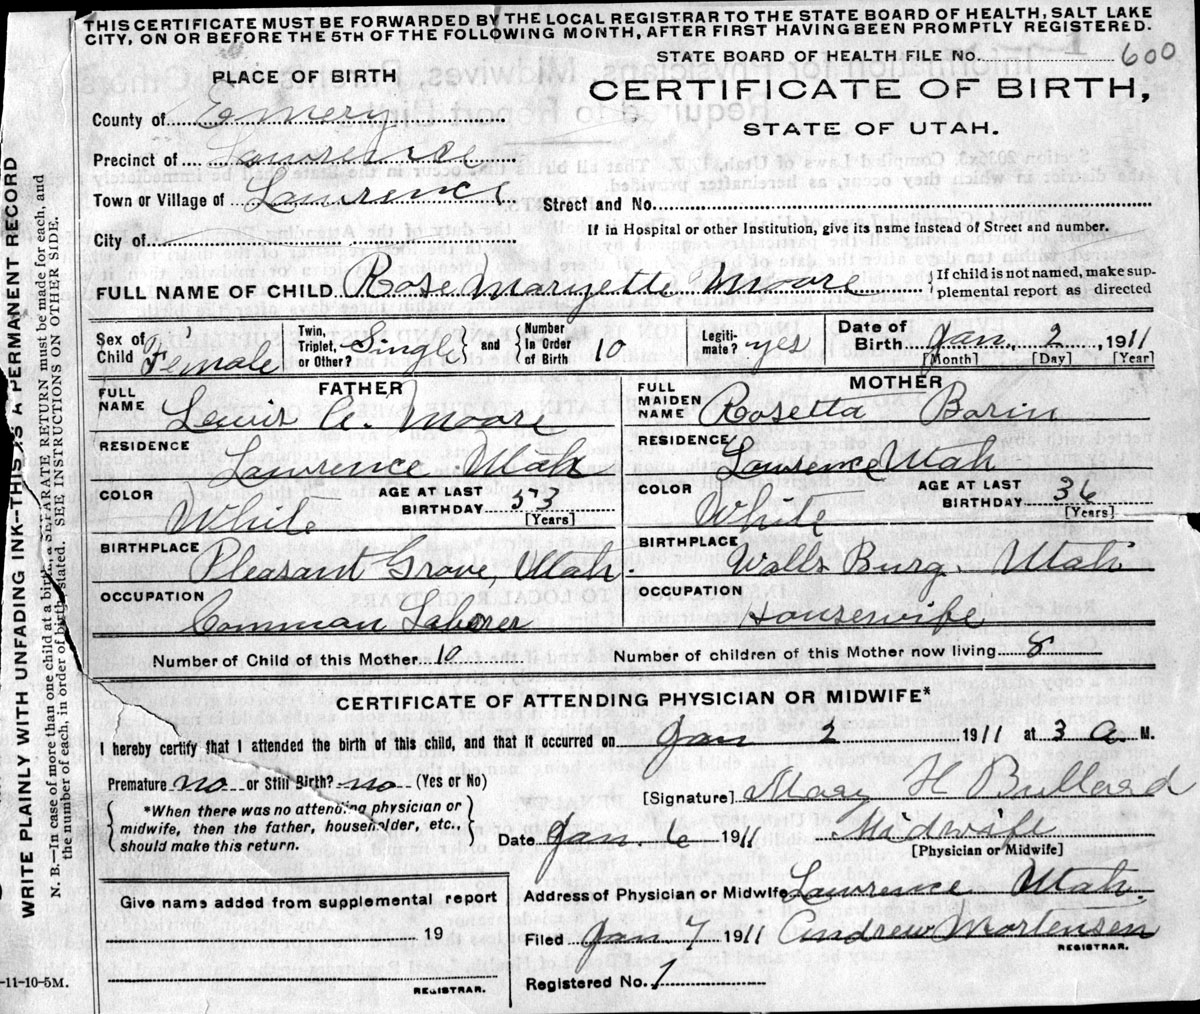 THIS CERTIFICATE MUST BE FORWARDED BY THE LOCAL REGISTRAR TO THE STATE BOARD OF HEALTH, SALT LAKE
CITY, ON OR BEFORE THE 5TH OF THE FOLLOWING MONTH, AFTER FIRST HAVING BEEN PROMPTLY REGISTERED.
STATE BOARD OF HEALTH FILE NO. 600
PLACE OF BIRTH
CERTIFICATE OF BIRTH,
STATE OF UTAH.
County of Emery
Precinct of Lawrence
Town or Village of Lawrence
Street and No.
City of
If in Hospital or other Institution, give its name Instead of Street and number.
FULL NAME OF CHILD Rose Maryette Moore { If child is not named, make sup-
plemental report as directed
Sex of Child Female
Twin, Triplet, or Other? Single } and { Number In Order of Birth 10
Legiti-mate? yes
Date of Birth Jan. 2, 1911
[Month] [Day] [Year]
FATHER
FULL NAME Lewis A. Moore
RESIDENCE Lawrence Utah
COLOR White
AGE AT LAST BIRTHDAY 53 [Years]
BIRTHPLACE Pleasant Grove, Utah.
OCCUPATION Comman Laborer
MOTHER
FULL MAIDEN NAME Rosetta Borin
RESIDENCE Lawrence Utah
COLOR White
AGE AT LAST BIRTHDAY 36 [Years]
BIRTHPLACE Walls Burg. Utah
OCCUPATION Housewife
Number of Child of this Mother 10 Number of children of this Mother now living 8
CERTIFICATE OF ATTENDING PHYSICIAN OR MIDWIFE*
I hereby certify that I attended the birth of this child, and that it occurred on Jan 2 1911 at 3 a M.
Premature no or Still Birth? no (Yes or No)
[Signature] Mary H Bullard
{ *When there was no attending physician or
midwife, then the father, householder, etc.,
should make this return. }
Date Jan. 6 1911 Midwife
[Physician or Midwife]
Address of Physician or Midwife Lawrence Utah.
Give name added from supplemental report
19
REGISTRAR.
Filed Jan 7 1911 Andrew Mortensen
REGISTRAR.
Registered No. 1
-11-10-5M.
WRITE PLAINLY WITH UNFADING INK--THIS IS A PERMANENT RECORD
N. B.—In case of more than one child at a birth, a SEPARATE RETURN must be made for each, and
the number of each, in order of birth, stated. SEE INSTRUCTIONS ON OTHER SIDE.